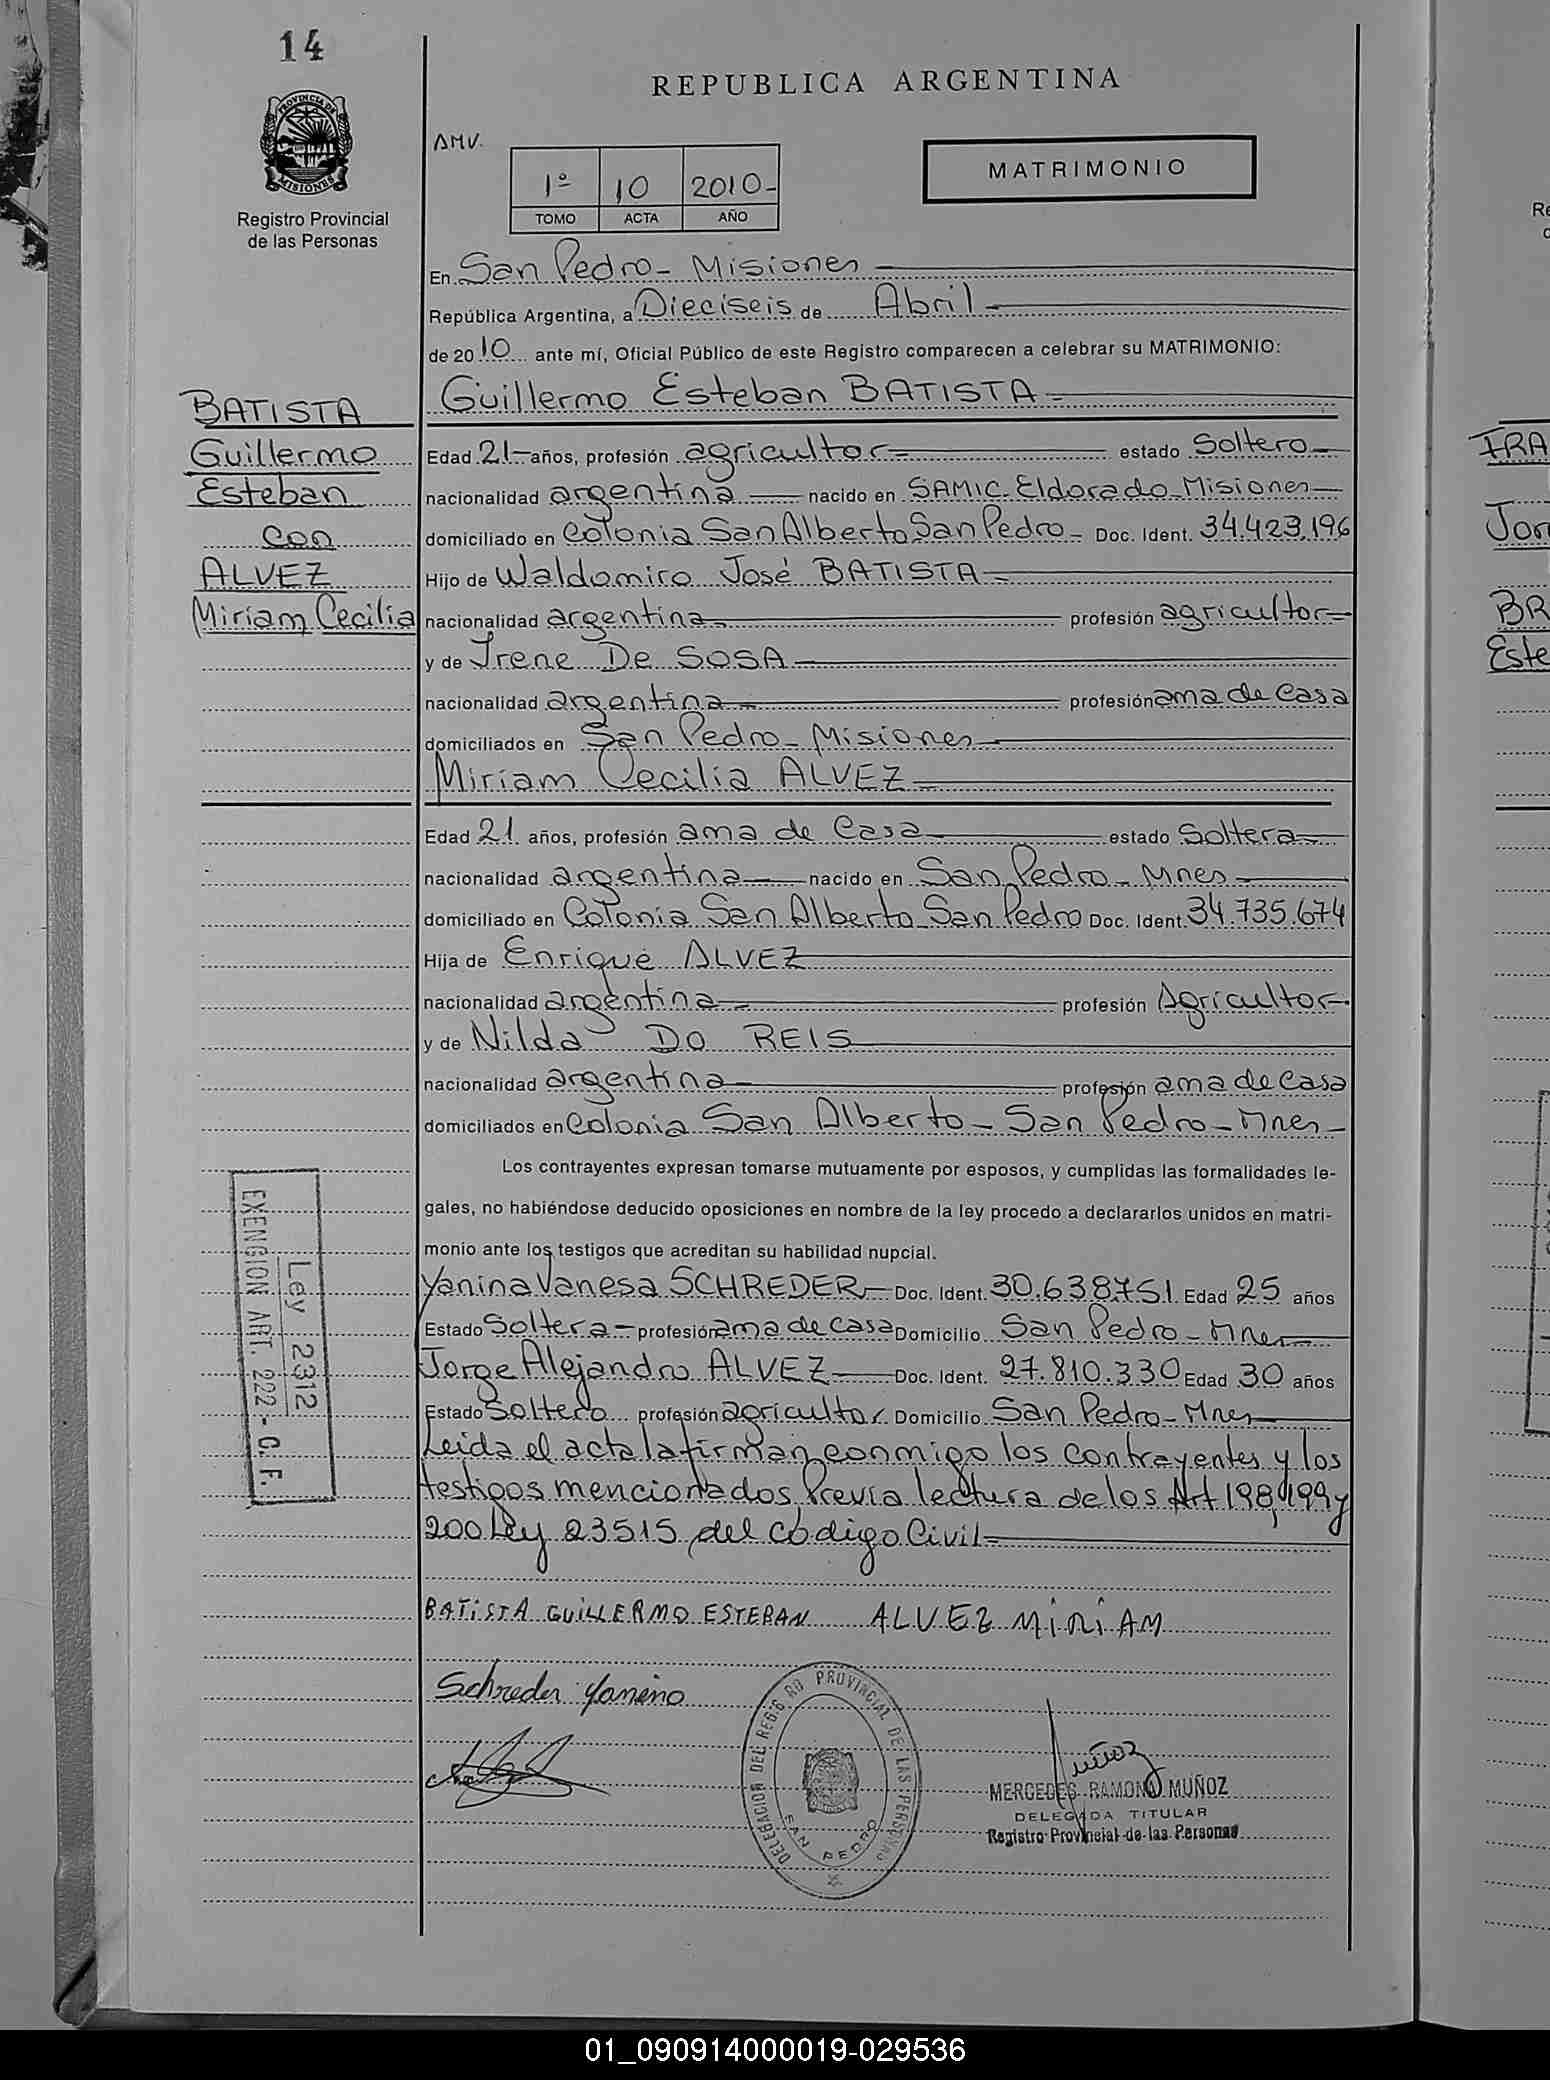 14
REPUBLICA ARGENTINA
PROVINCIA DE
MISIONES
Registro Provincial
de las Personas
AMV.
1º 10 2010-
TOMO ACTA AÑO
MATRIMONIO
En San Pedro - Misiones
República Argentina, a Dieciseis de Abril
de 2010 ante mí, Oficial Público de este Registro comparecen a celebrar su MATRIMONIO:
BATISTA
Guillermo
Esteban
con
ALVEZ
Miriam Cecilia
Guillermo Esteban BATISTA
Edad 21 años, profesión agricultor estado Soltero
nacionalidad argentina nacido en SAMIC. Eldorado - Misiones
domiciliado en Colonia San Alberto San Pedro - Doc. Ident. 34.423.196
Hijo de Waldomiro José BATISTA
nacionalidad argentina profesión agricultor
y de Irene De SOSA
nacionalidad argentina profesión ama de casa
domiciliados en San Pedro - Misiones
Miriam Cecilia ALVEZ
Edad 21 años, profesión ama de casa estado Soltera
nacionalidad argentina nacido en San Pedro - Mnes
domiciliado en Colonia San Alberto - San Pedro Doc. Ident. 34.735.674
Hija de Enrique ALVEZ
nacionalidad argentina profesión Agricultor
y de Nilda DO REIS
nacionalidad argentina profesión ama de casa
domiciliados en Colonia San Alberto - San Pedro - Mnes -
Los contrayentes expresan tomarse mutuamente por esposos, y cumplidas las formalidades le-
gales, no habiéndose deducido oposiciones en nombre de la ley procedo a declararlos unidos en matri-
monio ante los testigos que acreditan su habilidad nupcial.
Yanina Vanesa SCHREDER Doc. Ident. 30.638751 Edad 25 años
Estado Soltera - profesión ama de casa Domicilio San Pedro - Mnes
Jorge Alejandro ALVEZ Doc. Ident. 27.810.330 Edad 30 años
Estado Soltero profesión agricultor Domicilio San Pedro - Mnes
Leida el acta la firman conmigo los contrayentes y los
testigos mencionados, Previa lectura de los Art 198, 199 y
200 Ley 23515 del código Civil
Ley 2312
EXENCION ART. 222 - C. F.
BATISTA GUILLERMO ESTEBAN ALVEZ MIRIAM
Schreder Yanina
DELEGACION DEL REGISTRO PROVINCIAL DE LAS PERSONAS
SAN PEDRO
Muñoz
MERCEDES RAMONA MUÑOZ
DELEGADA TITULAR
Registro Provincial de las Personas
IRA
Jor
BR
Este
01_090914000019-029536